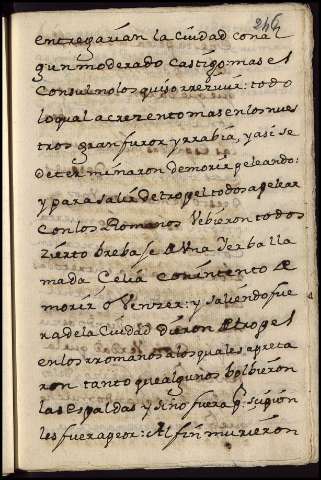 246
entregarían la Ciudad con al
gun moderado Castigo; mas el
Consul no los quiso rrezivir: todo
lo qual acrezento mas en los nues
tros gran furor y rrabia, y asi se
determinaron de morir peleando:
y para salir de tropel todos a pelear
con los Romanos Vebieron todos
zierto brebaje de Una Yerba lla
mada Çelia con intento de
morir o Venzer: y saliendo fue
ra de la Ciudad dieron de tropel
en los rromanos a los quales apreta
ron tanto que algunos bolbieron
las Espaldas y sino fuera q̃ Scipion
les fuera peor: Al fin murieron